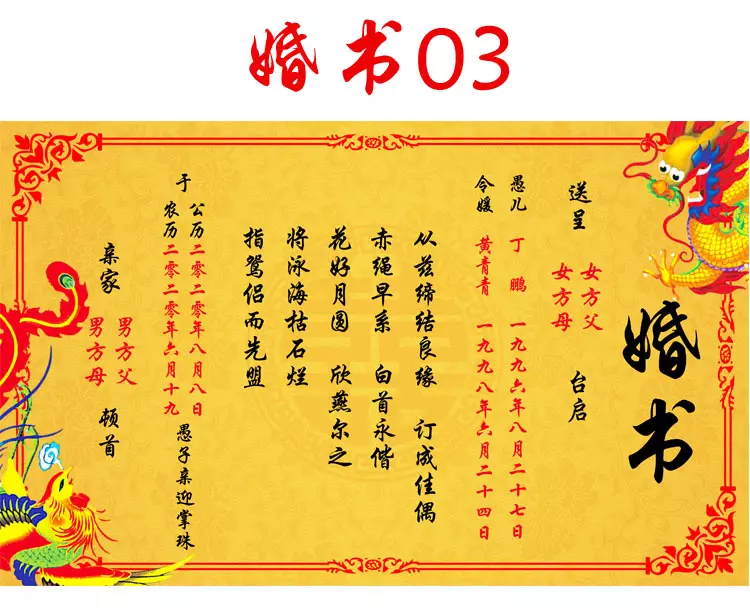 婚书03
婚书
送呈 女方父 女方母 台启
愚儿 丁鹏 一九九六年八月二十七日
令媛 黄青青 一九九八年六月二十四日
从兹缔结良缘 订成佳偶
赤绳早系 白首永偕
花好月圆 欣燕尔之
将泳海枯石烂
指鸳侣而先盟
于 公历二零二零年八月八日 农历二零二零年六月十九 愚子亲迎掌珠
亲家 男方父 男方母 顿首